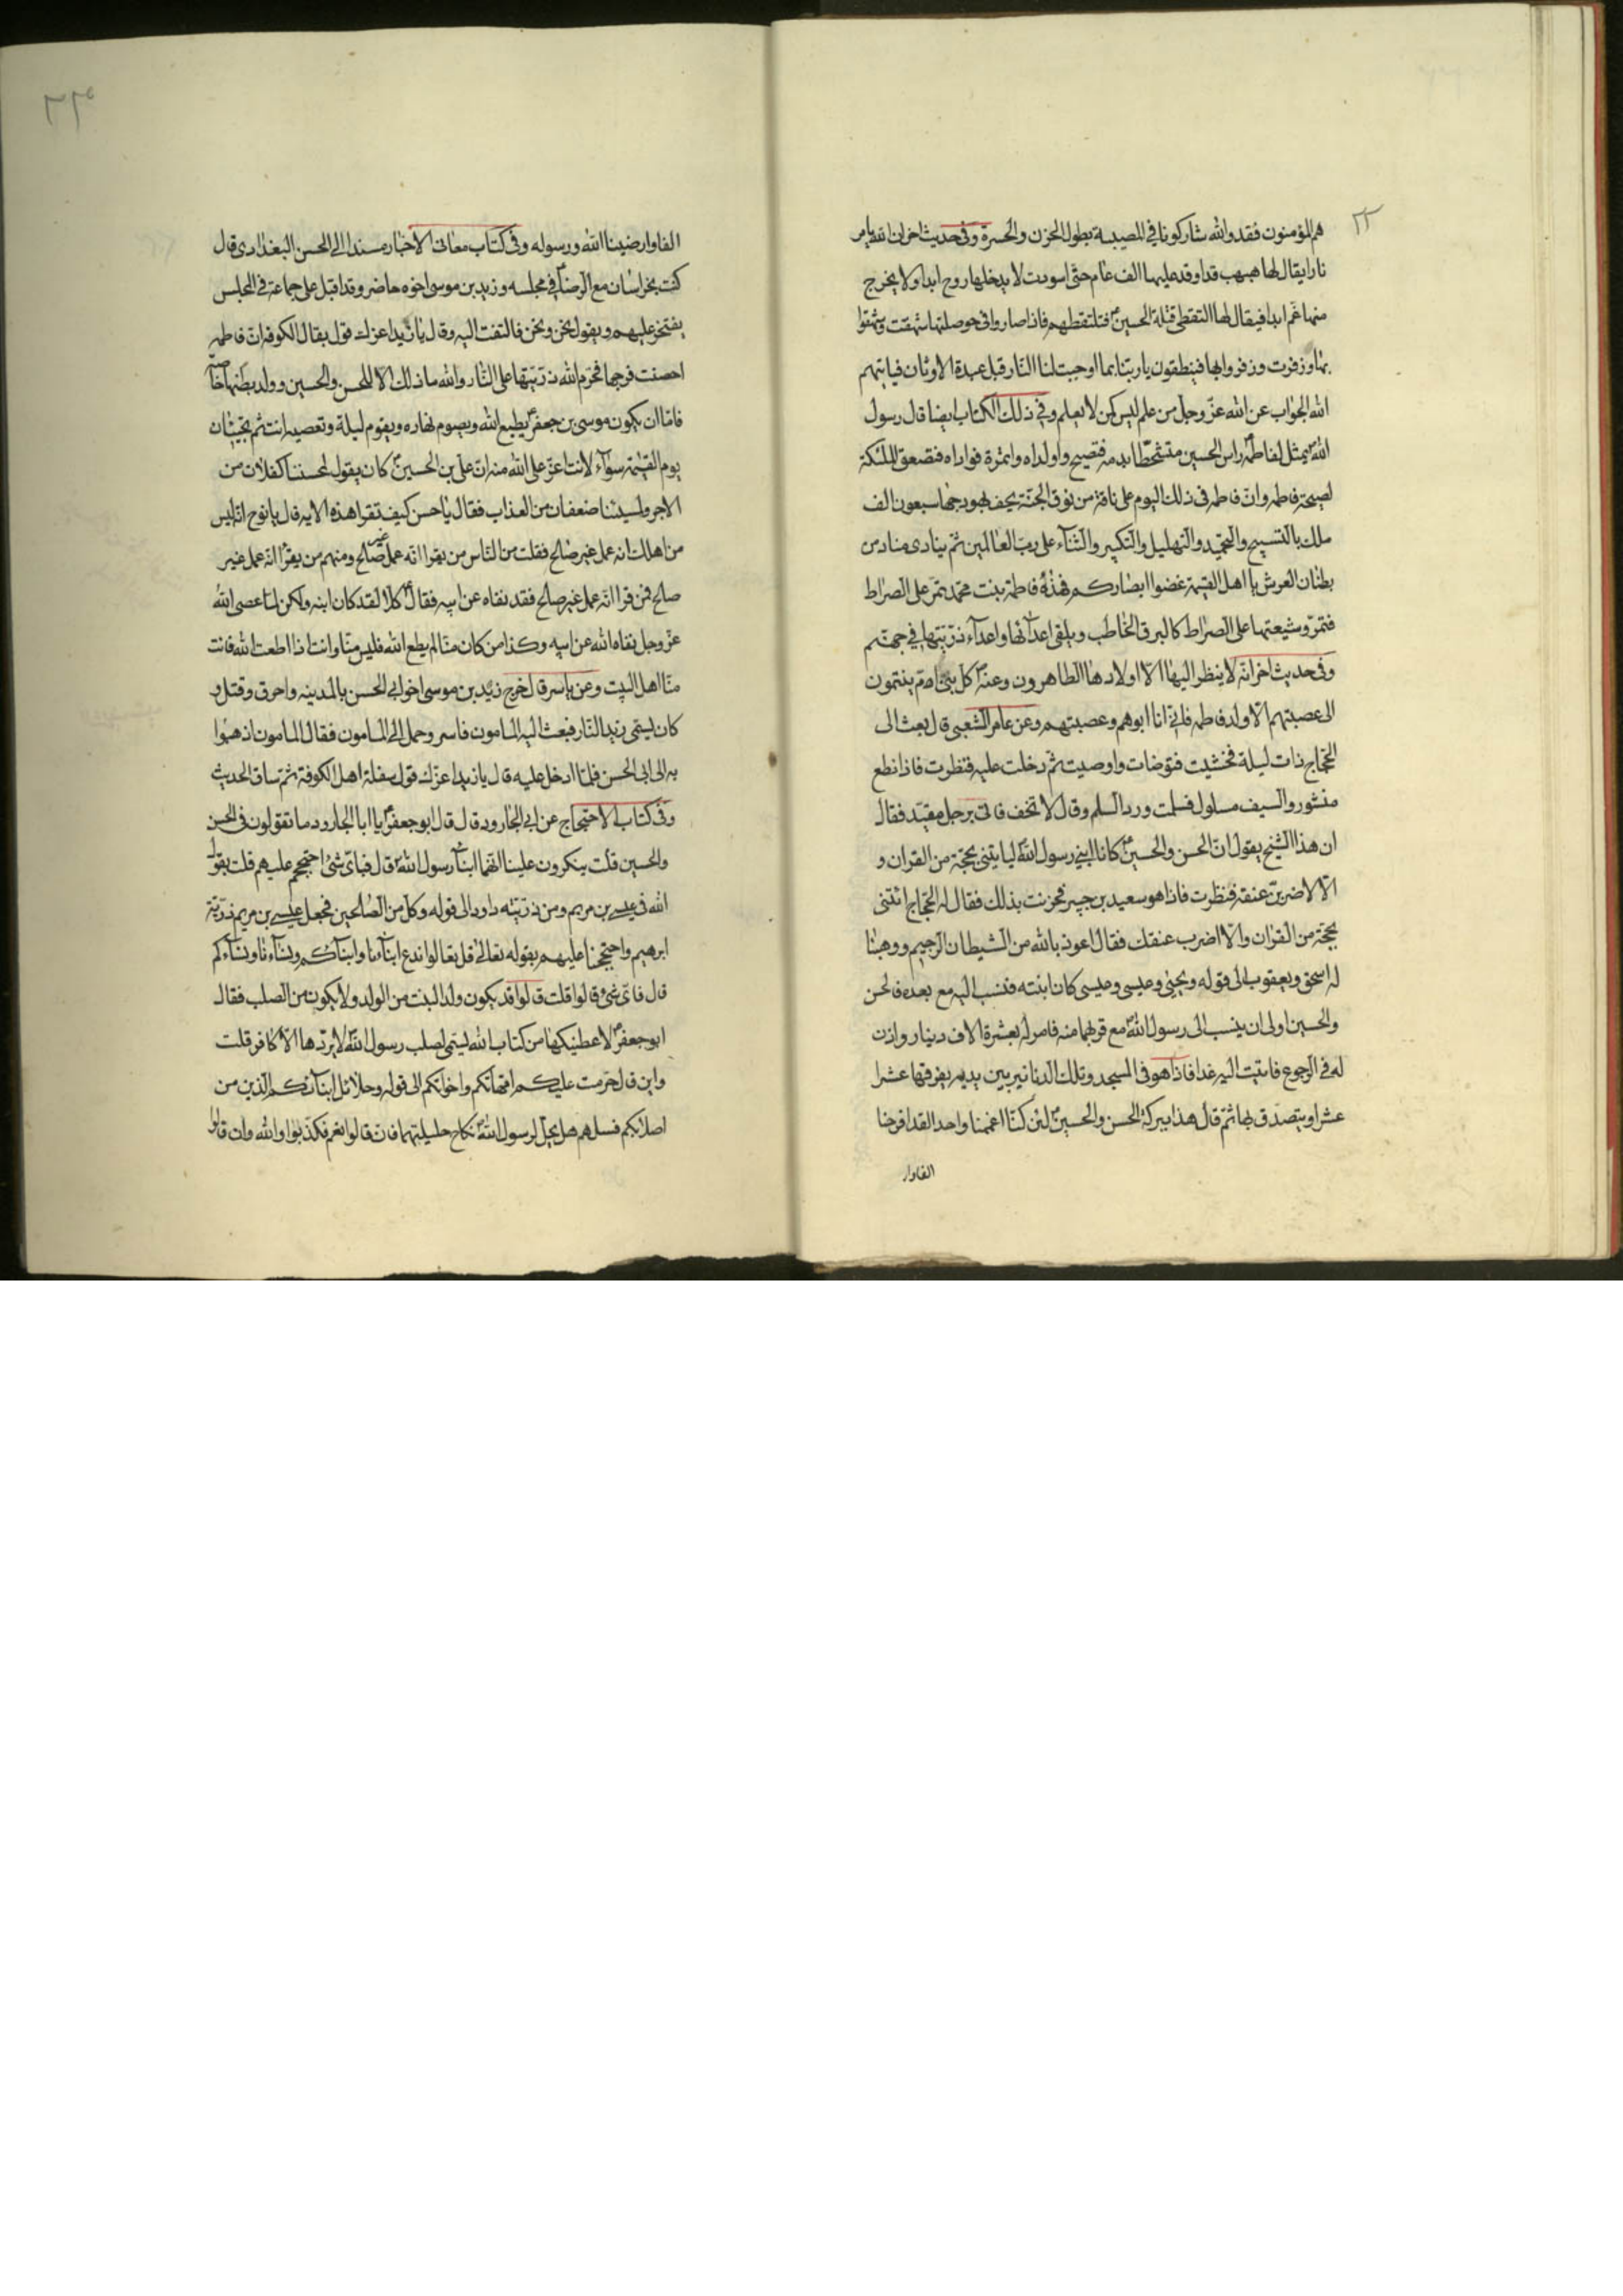 ٢٢
هم المؤمنون فقد والله شاركونا في المصيبة بطول الحزن والحسرة وفى حديث اخر ان الله يامر
نارا يقال لها هبهب قد اوقد عليها الف عام حتى اسودت لا يدخلها روح ابدا ولا يخرج
منها غم ابدا فيقال لها التقطى قتلة الحسين فتلتقطهم فاذا صاروا فى حوصلتها شهقت وشهقوا
بها وزفرت وزفروا بها فينطقون يا ربنا بما اوجبت لنا النار قبل عبدة الاوثان فياتيهم
الله الجواب عن الله عز وجل من علم ليس كمن لا يعلم وفى ذلك الكتاب ايضا قال رسول
الله يمثل لفاطمة راس الحسين متشحطا بدمه فتصيح وا ولداه وا ثمرة فواداه فتصعق الملئكة
لصيحة فاطمه وان فاطمه فى ذلك اليوم على ناقة من نوق الجنة يحف بهودجها سبعون الف
ملك بالتسبيح والتحميد والتهليل والتكبير والثناء على رب العالمين ثم ينادى مناد من
بطنان العرش يا اهل القيمة غضوا ابصاركم فهذه فاطمة بنت محمد تمر على الصراط
فتمر وشيعتها على الصراط كالبرق الخاطب ويلقى اعدائها واعداء ذريتها في جهنم
وفى حديث اخر انه لا ينظر اليها الا اولادها الطاهرون وعنه كل بنى ادم ينتمون
الى عصبتهم الا ولد فاطمه فانى انا ابوهم وعصبتهم وعن عامر الشعبى قال بعث الى
الحجاج ذات ليلة فخشيت فتوضات واوصيت ثم دخلت عليه فنظرت فاذا نطع
منشور والسيف مسلول فسلمت ورد السلم وقال لا تخف فاتى برجل مقيد فقال
ان هذا الشيخ يقول ان الحسن والحسين كانا ابنى رسول الله لياتينى بحجة من القران و
الا لاضربن عنقه فنظرت فاذا هو سعيد بن جبير فحزنت بذلك فقال له الحجاج ائتنى
بحجة من القران والا اضرب عنقك فقال اعوذ بالله من الشيطان الرجيم ووهبنا
له اسحق ويعقوب الى قوله ويحيى وعيسى وعيسى كان ابنته فنسب اليه مع بعده فالحسن
والحسين اولى ان ينسب الى رسول الله مع قربهما منه فامر له بعشرة الاف دينار واذن
له فى الرجوع فاتيت اليه غدا فاذا هو فى المسجد وتلك الدنانير بين يديه يفرقها عشرا
عشرا ويتصدق بها ثم قال هذا ببركة الحسن والحسين لئن كنا اغممنا واحدا لقد افرحنا
الفاوار
٢٣
الفا وارضينا الله ورسوله وفى كتاب معانى الاخبار مسندا الى الحسن البغدادى قال
كنت بخراسان مع الرضا فى مجلسه وزيد بن موسى اخوه حاضر وقد اقبل على جماعة فى المجلس
يفتخر عليهم ويقول نحن ونحن فالتفت اليه وقال يا زيد اعزك قول بقال الكوفه ان فاطمه
احصنت فرجها فحرم الله ذريتها على النار والله ما ذلك الا للحسن والحسين وولد بطنها خاصة
فاما ان يكون موسى بن جعفر يطيع الله ويصوم نهاره ويقوم ليلة وتعصيه انت ثم تجيئان
يوم القيمة سواء لانت اعز على الله منه ان على بن الحسين كان يقول لمحسننا كفلان من
الاجر ولمسيئنا ضعفان من العذاب فقال يا حسن كيف تقرا هذه الايه قال يا نوح انه ليس
من اهلك انه عمل غير صالح فقلت من الناس من يقرا انه عمل غير صالح ومنهم من يقرا انه عمل غير
صالح فمن قرا انه عمل غير صالح فقد نفاه عن ابيه فقال كلا لقد كان ابنه ولكن لما عصى الله
عز وجل نفاه الله عن ابيه وكذا من كان منا لم يطع الله فليس منا وانت اذا اطعت الله فانت
منا اهل البيت وعن ياسر قال خرج زيد بن موسى اخو ابى الحسن بالمدينه واحرق وقتل و
كان يسمى زيد النار فبعث اليه المامون فاسر وحمل الى المامون فقال المامون اذهبوا
به الى ابى الحسن فلما ادخل عليه قال يا زيد اعزك قول سفلة اهل الكوفة ثم ساق الحديث
وفى كتاب الاحتجاج عن ابى الجارود قال قال ابو جعفر يا ابا الجارود ما تقولون فى الحسن
والحسين قلت ينكرون علينا انهما ابنا رسول الله قال فباى شئ احتججتم عليهم قلت بقول
الله فى عيسى بن مريم ومن ذريته داود الى قوله وكل من الصالحين فجعل عيسى بن مريم ذرية
ابرهيم واحتججنا عليهم بقوله تعالى قل تعالوا ندع ابناءنا وابناءكم ونساءنا ونساءكم
قال فاى شئ قالوا قلت قالوا قد يكون ولد البنت من الولد ولا يكون من الصلب فقال
ابو جعفر لاعطينكها من كتاب الله ليتمى لصلب رسول الله لا يردها الا كافر قلت
واين قال حرمت عليكم امهاتكم واخواتكم الى قوله وحلائل ابنائكم الذين من
اصلابكم فسلهم هل يحل لرسول الله نكاح حليلتهما فان قالوا نعم فكذبوا والله وان قالوا